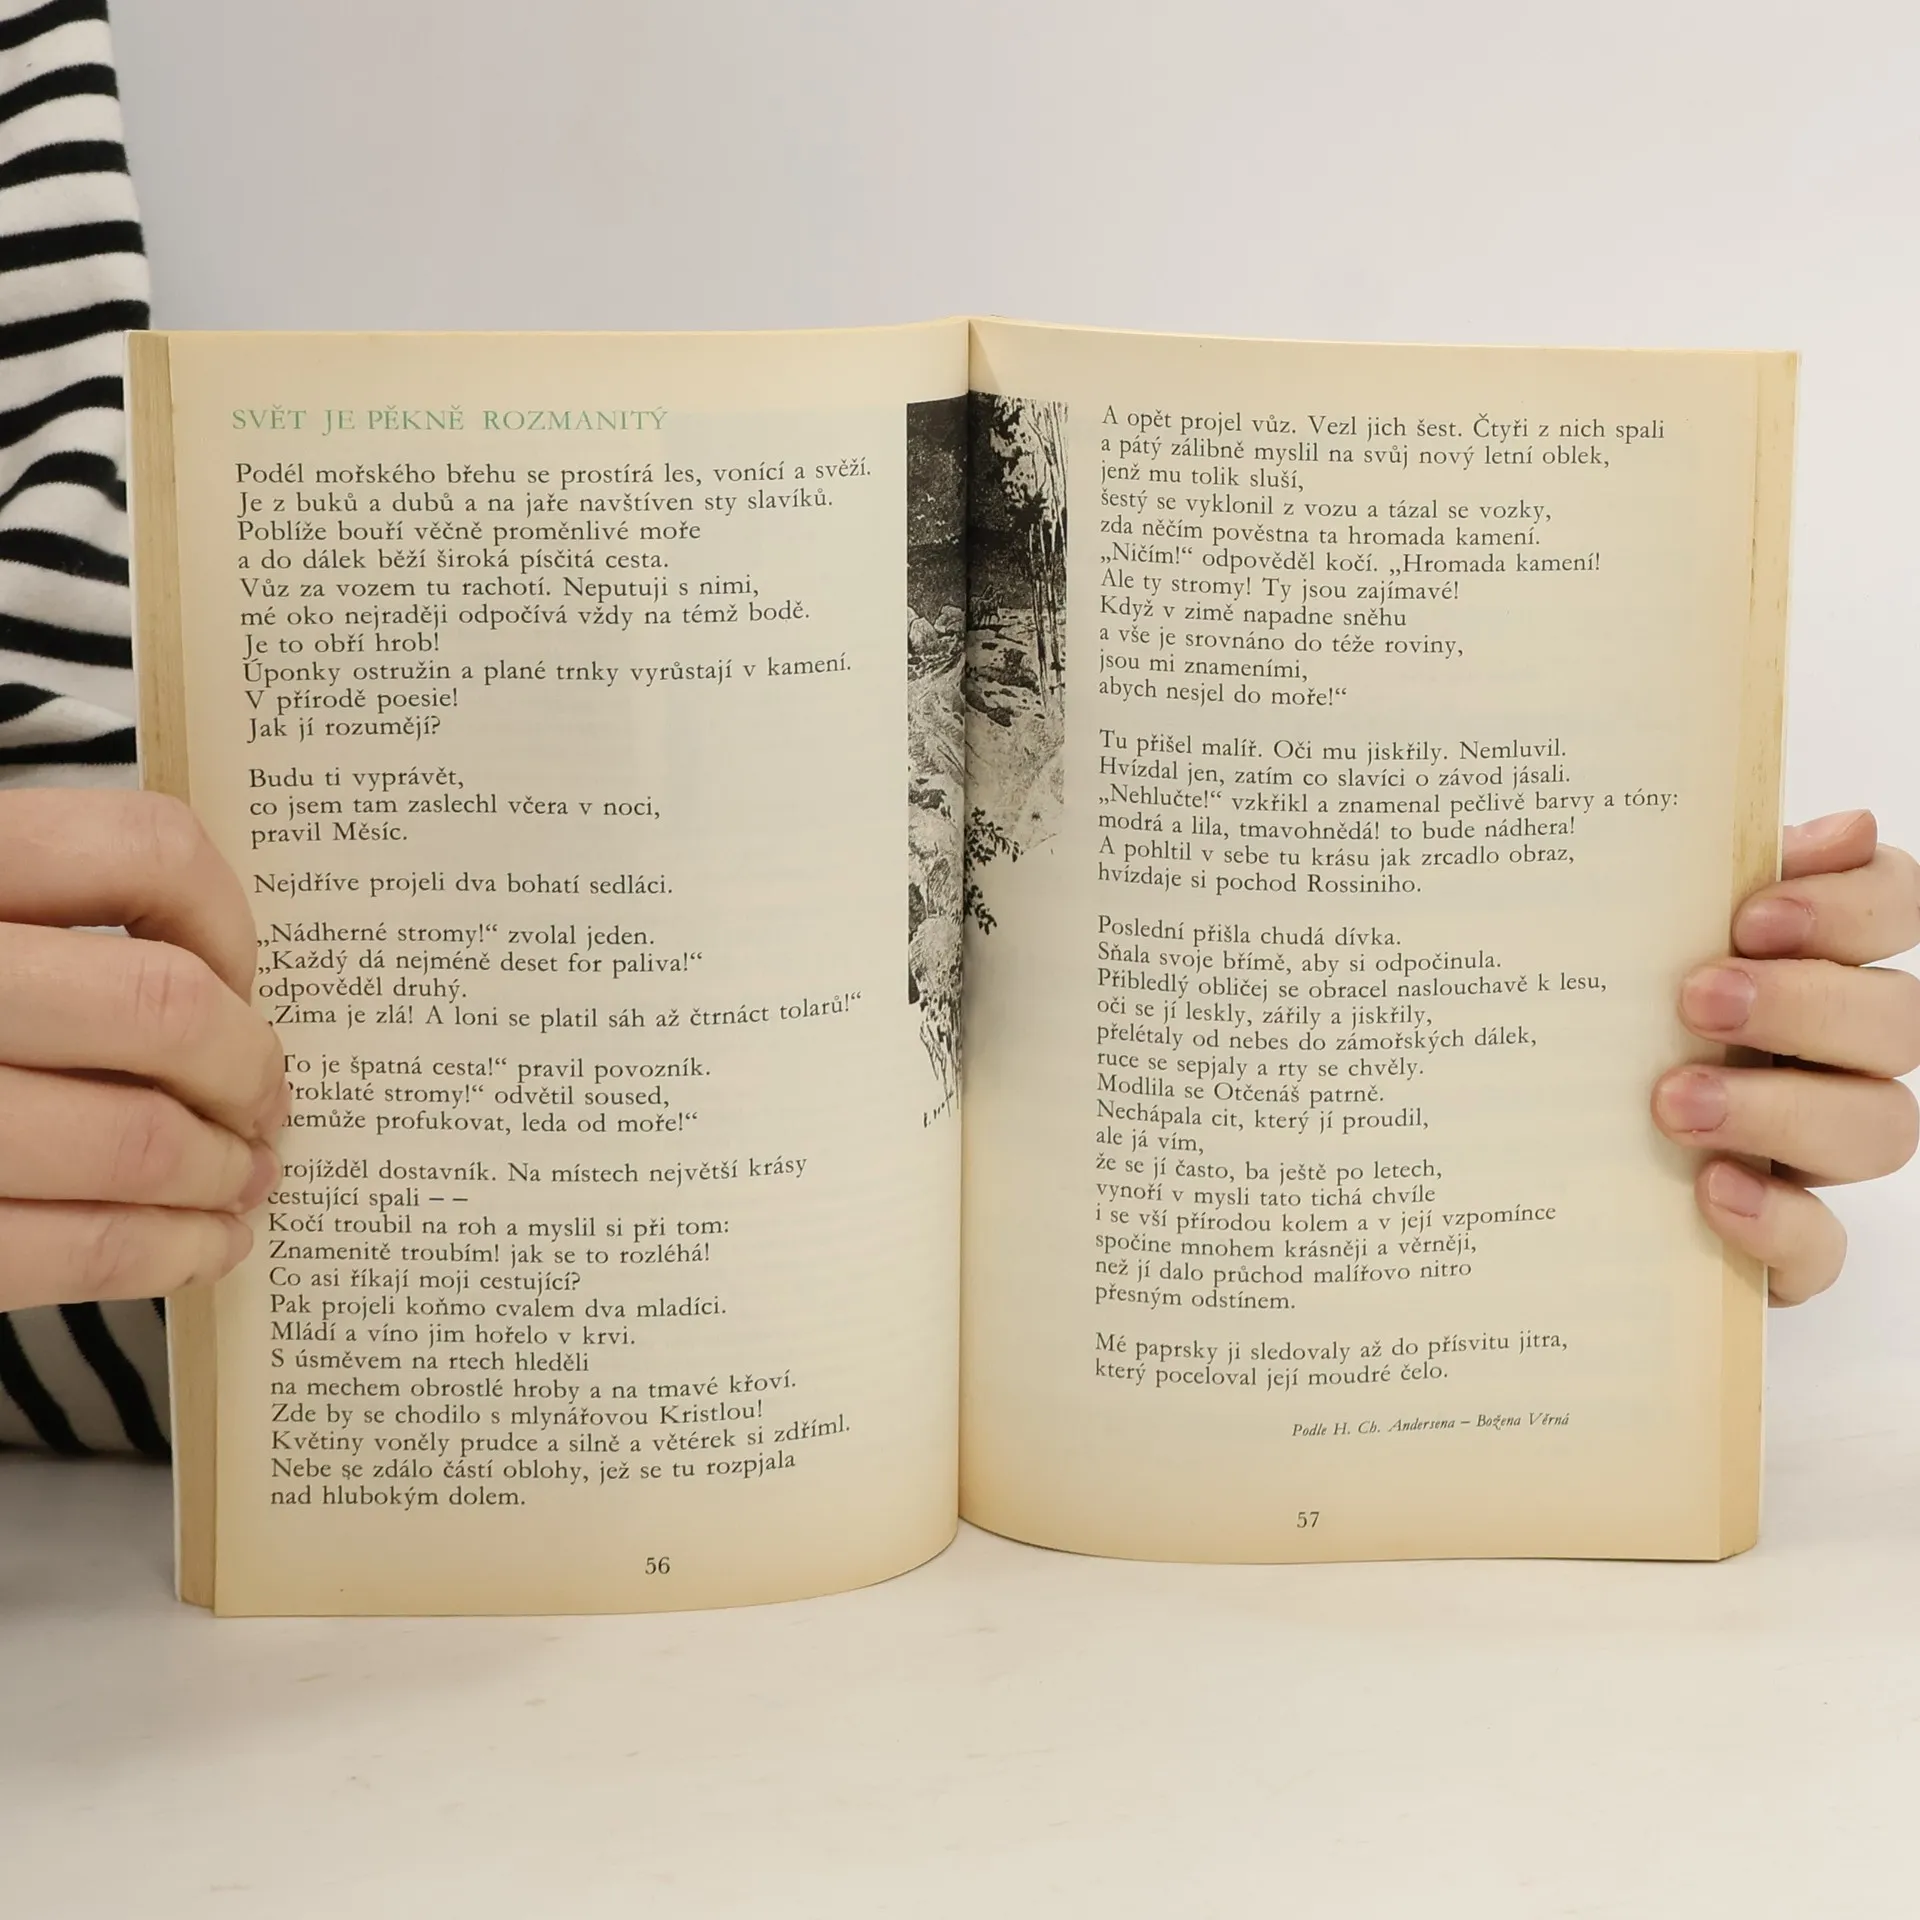 SVĚT JE PĚKNĚ ROZMANITÝ
Podél mořského břehu se prostírá les, vonící a svěží.
Je z buků a dubů a na jaře navštíven sty slavíků.
Poblíže bouří věčně proměnlivé moře
a do dálek běží široká písčitá cesta.
Vůz za vozem tu rachotí. Neputuji s nimi,
mé oko nejraději odpočívá vždy na témž bodě.
Je to obří hrob!
Úponky ostružin a plané trnky vyrůstají v kamení.
V přírodě poesie!
Jak jí rozumějí?
Budu ti vyprávět,
co jsem tam zaslechl včera v noci,
pravil Měsíc.
Nejdříve projeli dva bohatí sedláci.
„Nádherné stromy!“ zvolal jeden.
„Každý dá nejméně deset for paliva!“
odpověděl druhý.
„Zima je zlá! A loni se platil sáh až čtrnáct tolarů!“
To je špatná cesta!“ pravil povozník.
stromy!“ odvětil soused,
profukovat, leda od moře!“
dostavník. Na místech největší krásy
cestující spali – –
Kočí troubil na roh a myslil si při tom:
Znamenitě troubím! jak se to rozléhá!
Co asi říkají moji cestující?
Pak projeli koňmo cvalem dva mladíci.
Mládí a víno jim hořelo v krvi.
S úsměvem na rtech hleděli
na mechem obrostlé hroby a na tmavé křoví.
Zde by se chodilo s mlynářovou Kristlou!
Květiny voněly prudce a silně a větérek si zdříml.
Nebe se zdálo částí oblohy, jež se tu rozpjala
nad hlubokým dolem.
56
A opět projel vůz. Vezl jich šest. Čtyři z nich spali
a pátý zálibně myslil na svůj nový letní oblek,
jenž mu tolik sluší,
šestý se vyklonil z vozu a tázal se vozky,
zda něčím pověstna ta hromada kamení.
„Ničím!“ odpověděl kočí. „Hromada kamení!
Ale ty stromy! Ty jsou zajímavé!
Když v zimě napadne sněhu
a vše je srovnáno do téže roviny,
jsou mi znameními,
abych nesjel do moře!“
Tu přišel malíř. Oči mu jiskřily. Nemluvil.
Hvízdal jen, zatím co slavíci o závod jásali.
„Nehlučte!“ vzkřikl a znamenal pečlivě barvy a tóny:
modrá a lila, tmavohnědá! to bude nádhera!
A pohltil v sebe tu krásu jak zrcadlo obraz,
hvízdaje si pochod Rossiniho.
Poslední přišla chudá dívka.
Sňala svoje břímě, aby si odpočinula.
Přibledlý obličej se obracel naslouchavě k lesu,
oči se jí leskly, zářily a jiskřily,
přelétaly od nebes do zámořských dálek,
ruce se sepjaly a rty se chvěly.
Modlila se Otčenáš patrně.
Nechápala cit, který jí proudil,
ale já vím,
že se jí často, ba ještě po letech,
vynoří v mysli tato tichá chvíle
i se vší přírodou kolem a v její vzpomínce
spočine mnohem krásněji a věrněji,
než jí dalo průchod malířovo nitro
přesným odstínem.
Mé paprsky ji sledovaly až do přísvitu jitra,
který poceloval její moudré čelo.
Podle H. Ch. Andersena – Božena Věrná
57